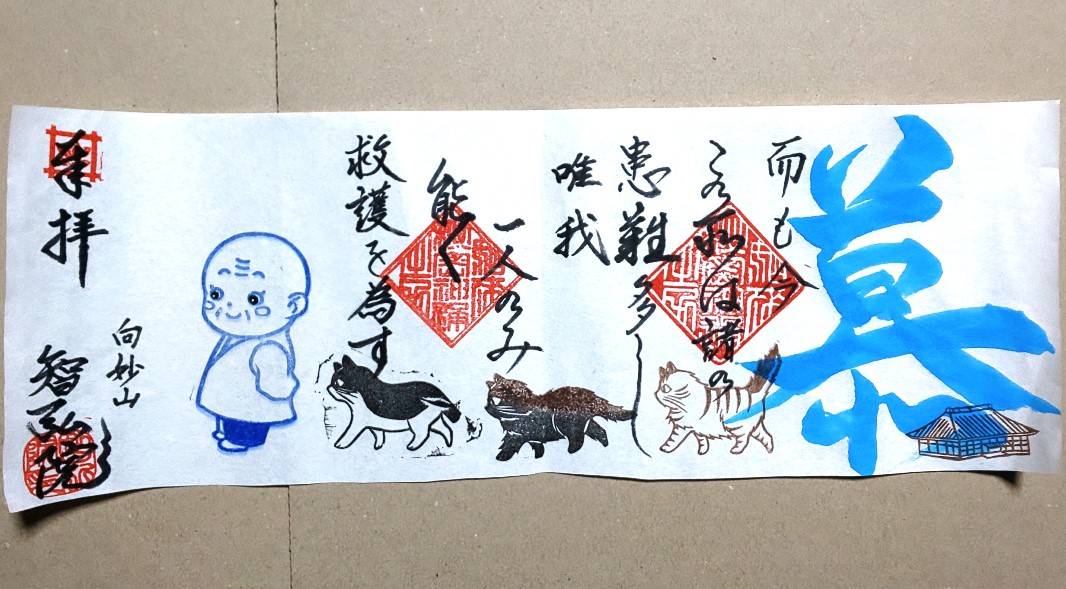 慕
而も今
この所は諸の
患難多し
唯我
一人のみ
能く
救護を為す
奉拝
向妙山
智弘院